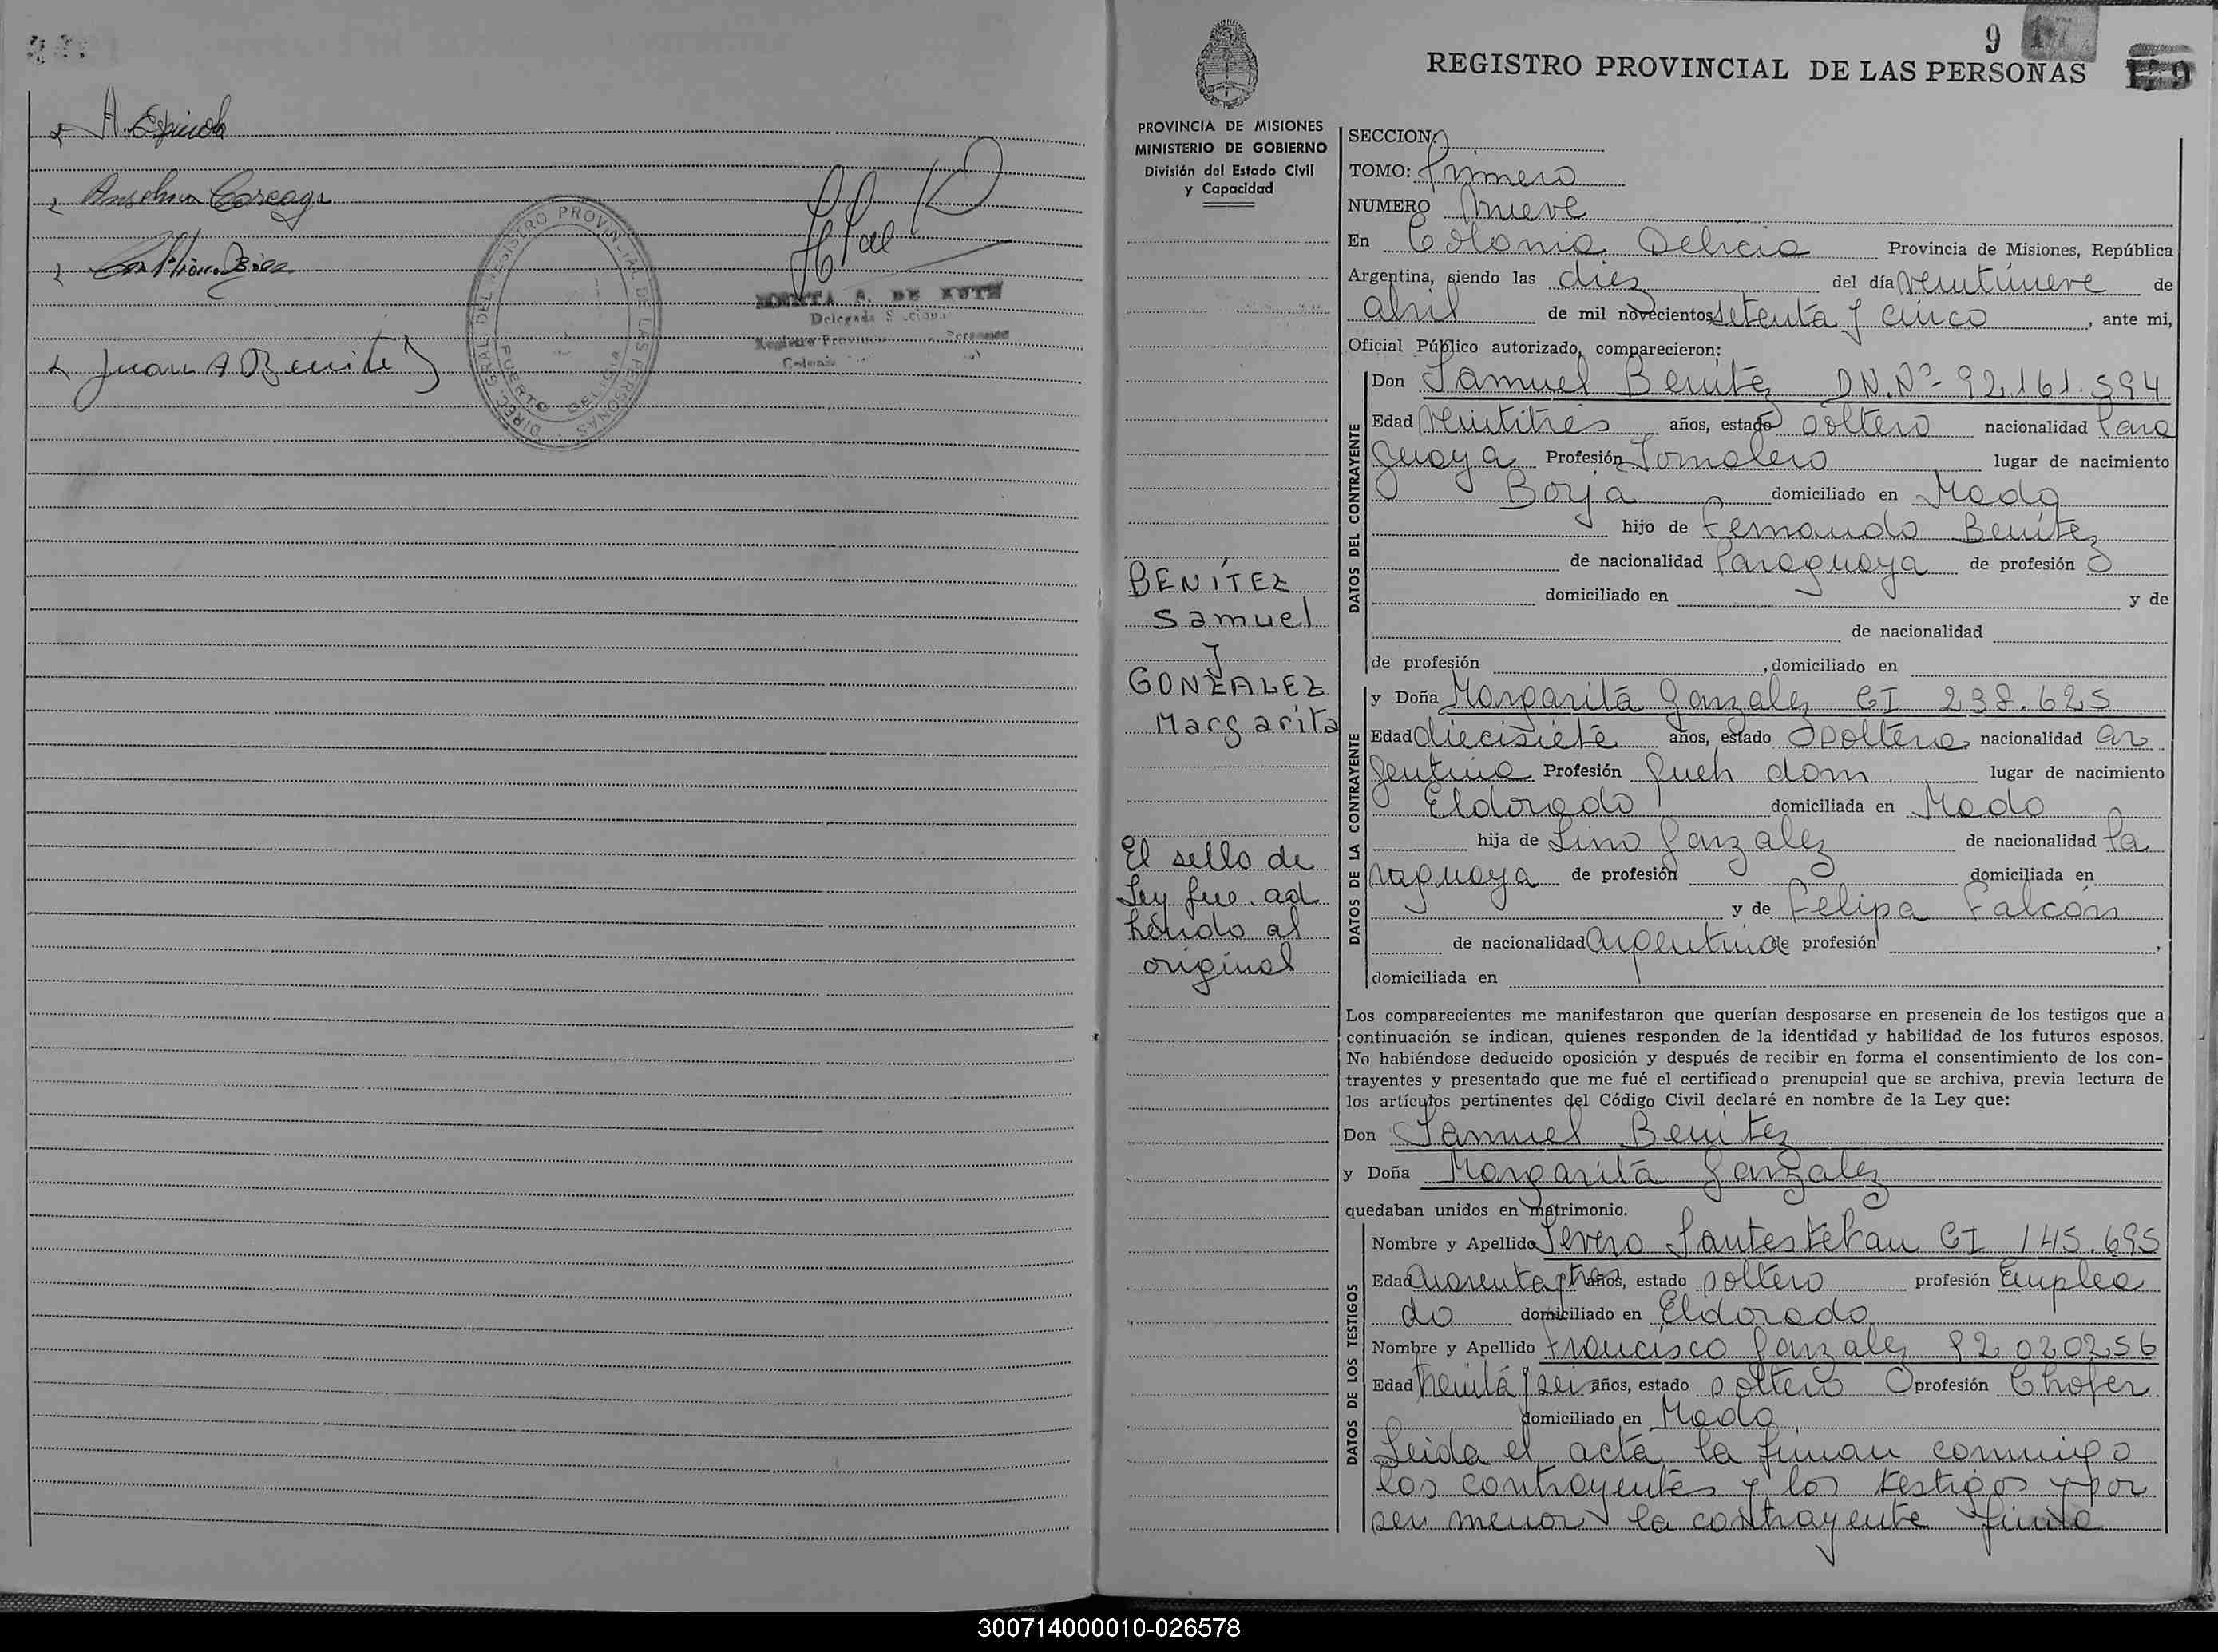 A. Espinola
Anselma Careaga
Juan A Benitez
DIREC. GRAL. DEL REGISTRO PROVINCIAL DE LAS PERSONAS
PUERTO DELICIA
DE KUTH
Delegada
Registro Provincial Personas
Colonia
PROVINCIA DE MISIONES
MINISTERIO DE GOBIERNO
División del Estado Civil
y Capacidad
BENÍTEZ
Samuel
y
GONZALEZ
Margarita
El sello de
Ley fue ad
herido al
original
9 17
REGISTRO PROVINCIAL DE LAS PERSONAS
SECCION:
TOMO: Primero
NUMERO nueve
En Colonia Delicia Provincia de Misiones, República
Argentina, siendo las diez del día veintinueve de
abril de mil novecientos setenta y cinco, ante mi,
Oficial Público autorizado, comparecieron:
DATOS DEL CONTRAYENTE
Don Samuel Benítez DN.Nº- 92.161.594
Edad veintitres años, estado soltero nacionalidad Para
guaya Profesión Jornalero lugar de nacimiento
Borja domiciliado en Mado
hijo de Fernando Benítez
de nacionalidad Paraguaya de profesión
domiciliado en y de
de nacionalidad
de profesión , domiciliado en
DATOS DE LA CONTRAYENTE
y Doña Margarita Gonzalez CI 238.625
Edad diecisiete años, estado soltera nacionalidad ar
gentina Profesión Queh dom lugar de nacimiento
Eldorado domiciliada en Mado
hija de Lino Gonzalez de nacionalidad Pa
raguaya de profesión domiciliada en
y de Felipa Falcón
de nacionalidad argentina de profesión ,
domiciliada en
Los comparecientes me manifestaron que querían desposarse en presencia de los testigos que a
continuación se indican, quienes responden de la identidad y habilidad de los futuros esposos.
No habiéndose deducido oposición y después de recibir en forma el consentimiento de los con-
trayentes y presentado que me fué el certificado prenupcial que se archiva, previa lectura de
los artículos pertinentes del Código Civil declaré en nombre de la Ley que:
Don Samuel Benítez
y Doña Margarita Gonzalez
quedaban unidos en matrimonio.
DATOS DE LOS TESTIGOS
Nombre y Apellido Severo Santesteban CI 145.695
Edad cuarenta y tres años, estado soltero profesión Emplea
do domiciliado en Eldorado
Nombre y Apellido Francisco Gonzalez 92.020256
Edad treinta y seis años, estado soltero profesión Chofer
domiciliado en Mado
Leida el acta la firman conmigo
los contrayentes y los testigos y por
ser menor la contrayente firma
300714000010-026578